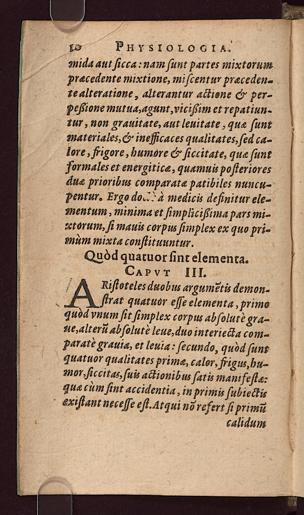 10 PHYSIOLOGIA.
mida aut sicca: nam sunt partes mixtorum
præcedente mixtione, miscentur præceden-
te alteratione, alterantur actione & per-
peßione mutua, agunt, vicißim et repatiun-
tur, non grauitate, aut leuitate, quæ sunt
materiales, & inefficaces qualitates, sed ca-
lore, frigore, humore & siccitate, quæ sunt
formales et energiticæ, quamuis posteriores
duæ prioribus comparatæ patibiles nuncu-
pentur. Ergo à medicis definitur ele-
mentum, minima et simplicißima pars mi-
xtorum, si mauis corpus simplex ex quo pri-
mùm mixta constituuntur.
Quòd quatuor sint elementa.
CAPVT III.
ARistoteles duobus argumētis demon-
strat quatuor esse elementa, primo
quòd vnum sit simplex corpus absolutè gra-
ue, alterū absolutè leue, duo interiecta com-
paratè grauia, et leuia: secundo, quòd sunt
quatuor qualitates primæ, calor, frigus, hu-
mor, siccitas, suis actionibus satis manifestæ:
quæ cùm sint accidentia, in primis subiectis
existant necesse est. Atqui nō refert si primū
calidum